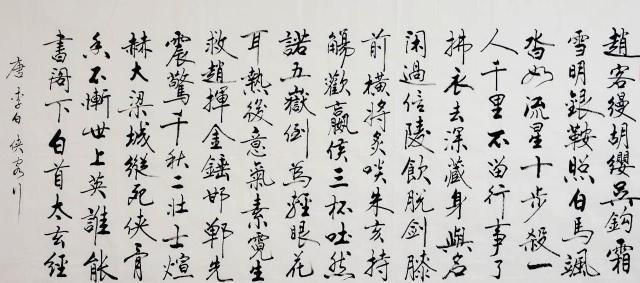 趙客縵胡纓吳鈎霜
雪明銀鞍照白馬颯
沓如流星十步殺一
人千里不留行事了
拂衣去深藏身與名
閑過信陵飲脫劍膝
前橫將炙啖朱亥持
觴歡嬴侯三杯吐然
諾五嶽倒為輕眼花
耳執後意氣素霓生
救趙揮金錘邯鄲先
震驚千秋二壯士煊
赫大梁城縱死俠骨
香不慚世上英誰能
書閣下白首太玄經
唐李白俠客行